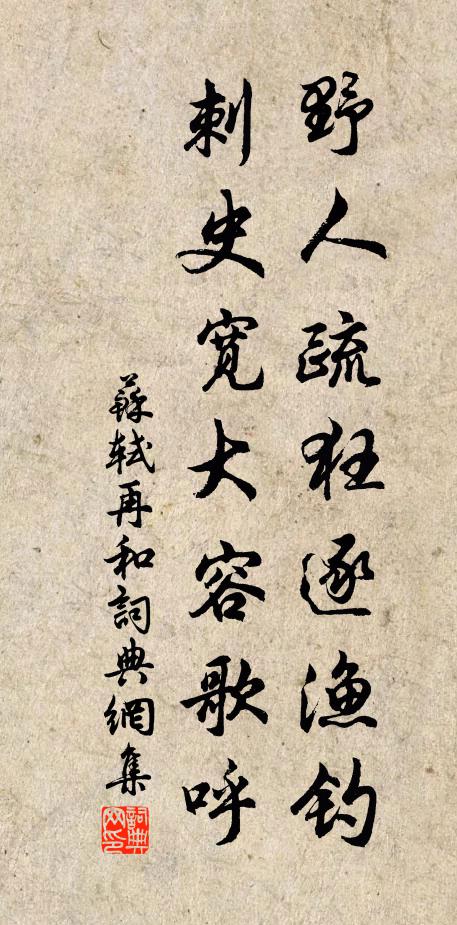 野人疏狂逐漁釣
刺史寬大容歌呼
蘇軾再和詞典網集
詞典网印